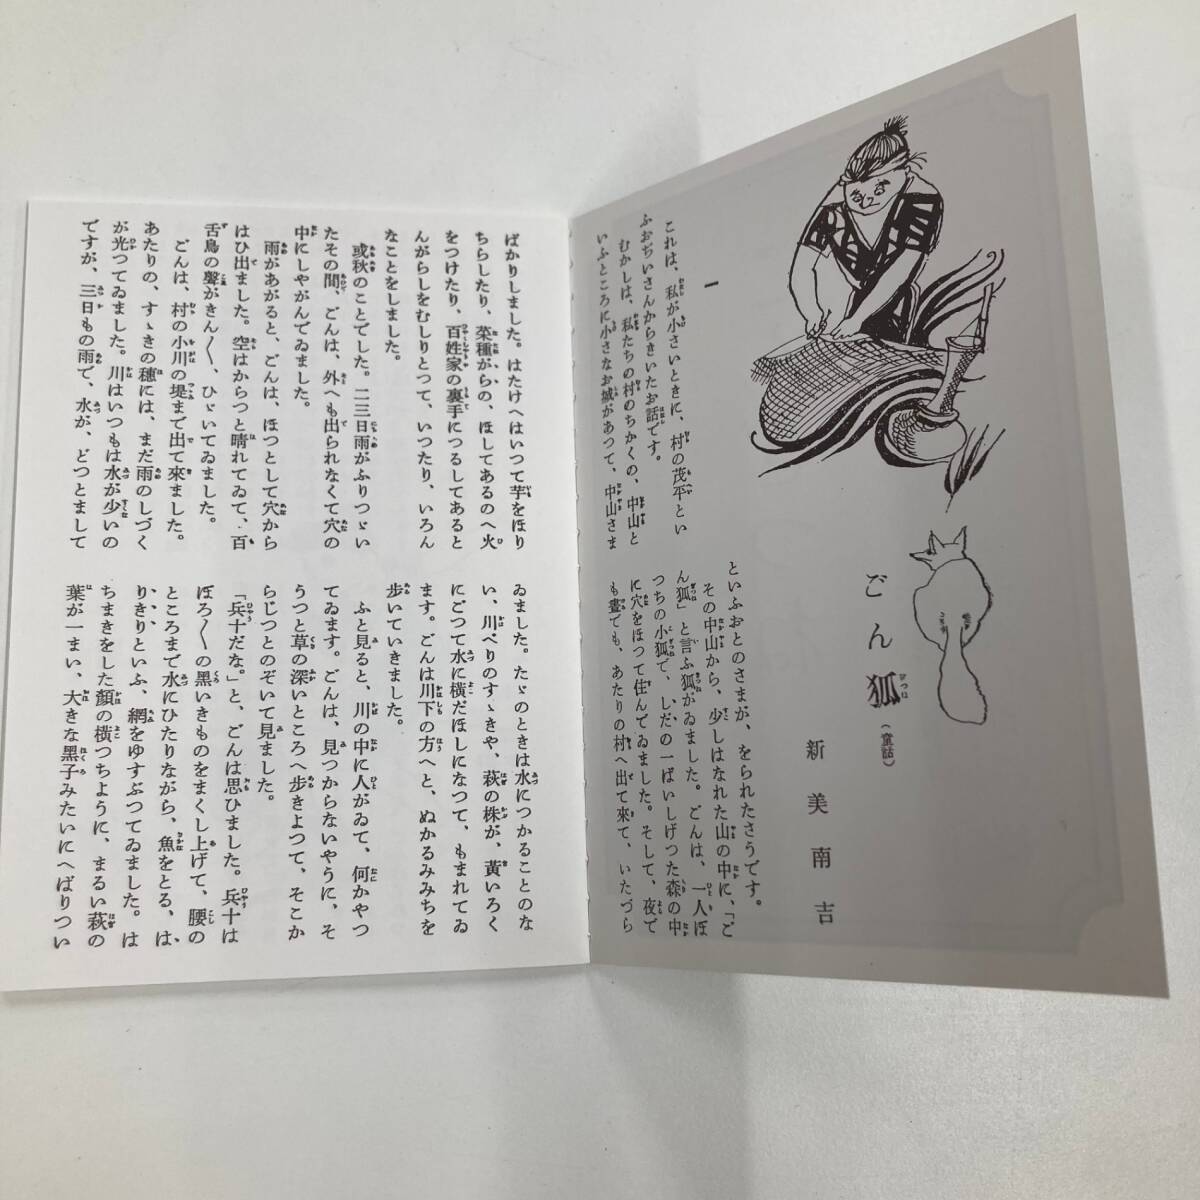 ごん狐（童話）
新美南吉
一
これは、私が小さいときに、村の茂平とい
ふおぢいさんからきいたお話です。
むかしは、私たちの村のちかくの、中山と
いふところに小さなお城があつて、中山さま
といふおとのさまが、をられたさうです。
その中山から、少しはなれた山の中に、「ご
ん狐」と言ふ狐がゐました。ごんは、一人ぼ
つちの小狐で、しだの一ぱいしげつた森の中
に穴をほつて住んでゐました。そして、夜で
も晝でも、あたりの村へ出て來て、いたづら
ばかりしました。はたけへはいつて芋をほり
ちらしたり、菜種がらの、ほしてあるのへ火
をつけたり、百姓家の裏手につるしてあると
んがらしをむしりとつて、いつたり、いろん
なことをしました。
或秋のことでした。二三日雨がふりつゞい
たその間、ごんは、外へも出られなくて穴の
中にしやがんでゐました。
雨があがると、ごんは、ほつとして穴から
はひ出ました。空はからつと晴れてゐて、百
舌鳥の聲がきん〳〵、ひゞいてゐました。
ごんは、村の小川の堤まで出て來ました。
あたりの、すゝきの穗には、まだ雨のしづく
が光つてゐました。川はいつもは水が少いの
ですが、三日もの雨で、水が、どつとまして
ゐました。たゞのときは水につかることのな
い、川べりのすゝきや、萩の株が、黄いろく
にごつて水に横だほしになつて、もまれてゐ
ます。ごんは川下の方へと、ぬかるみみちを
歩いていきました。
ふと見ると、川の中に人がゐて、何かやつ
てゐます。ごんは、見つからないやうに、そ
うつと草の深いところへ歩きよつて、そこか
らじつとのぞいて見ました。
「兵十だな。」と、ごんは思ひました。兵十は
ぼろ〳〵の黒いきものをまくし上げて、腰の
ところまで水にひたりながら、魚をとる、は
りきりといふ、網をゆすぶつてゐました。は
ちまきをした顏の横つちように、まるい萩の
葉が一まい、大きな黒子みたいにへばりつい